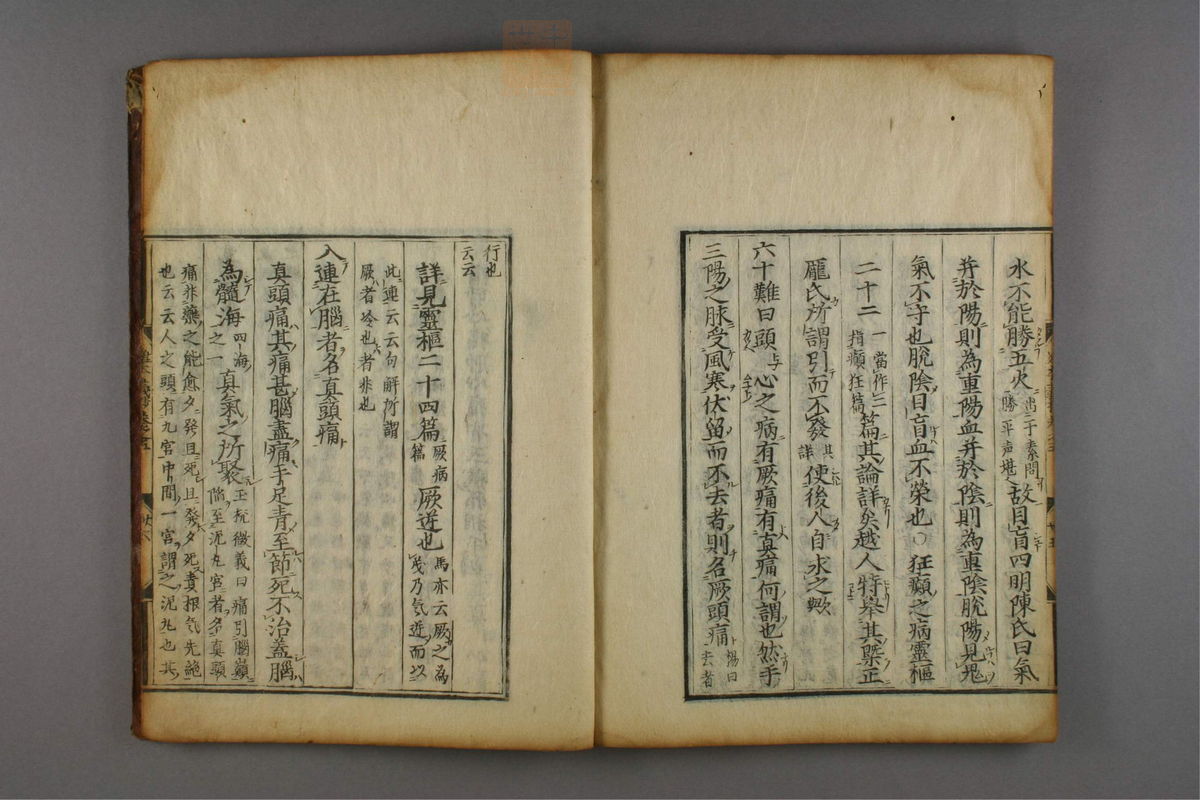 水不能勝五火出于素問勝平声堪故目盲四明陳氏曰氣
并於陽則為重陽血并於陰則為重陰脫陽見鬼
氣不守也脫陰目盲血不榮也○狂癲之病靈樞
二十二一當作三指癲狂篇篇其論詳矣越人特舉其槩正
龐氏所謂引而不發其詳使後人自求之歟
六十難曰頭与心之病有厥痛有真痛何謂也然手
三陽之脉受風寒伏留而不去者則名厥頭痛楊曰去者
行也云云
詳見靈樞二十四篇厥病篇厥逆也馬亦云厥之為義乃気逆而以
此連云云句解所謂厥者冷也者非也
入連在腦者名真頭痛
真頭痛其痛甚腦盡痛手足青至節死不治蓋腦
為髓海四海之一真氣之所聚玉机微義曰痛引腦巔陥至泥丸宮者名真頭
痛非藥之能愈夕発旦死旦発夕死責根気先絶
也云云人之頭有九宮中間一宮謂之泥丸也其